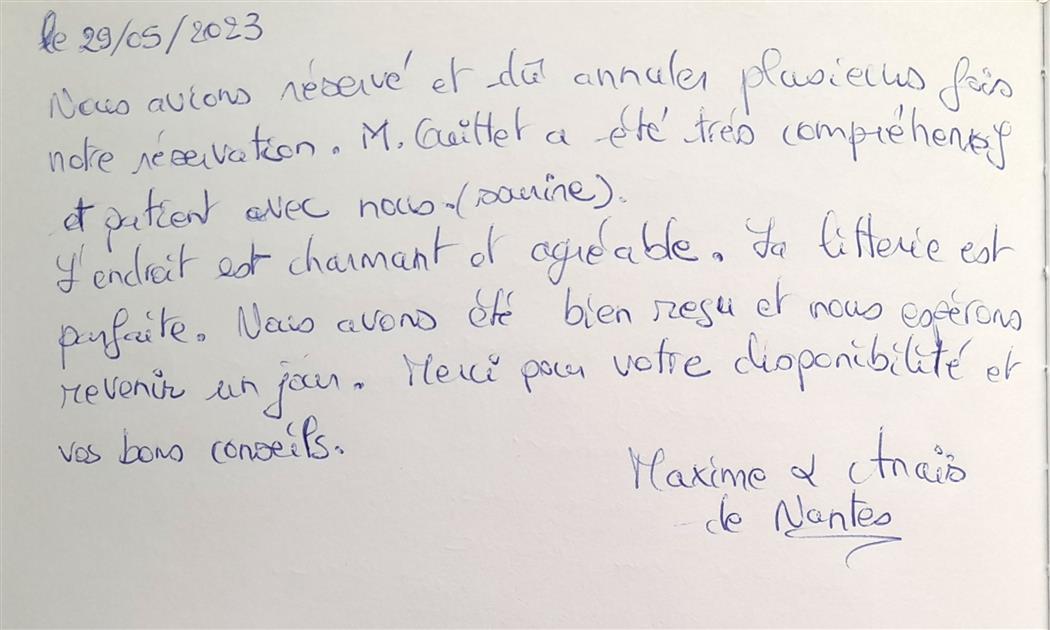 le 29/05/2023
Nous avions réservé et dû annuler plusieurs fois
notre réservation. M. Guittet a été très compréhensif
et patient avec nous. (sourire).
L'endroit est charmant et agréable. La litterie est
parfaite. Nous avons été bien reçu et nous espérons
revenir un jour. Merci pour votre disponibilité et
vos bons conseils.
Maxime & Anaïs
de Nantes